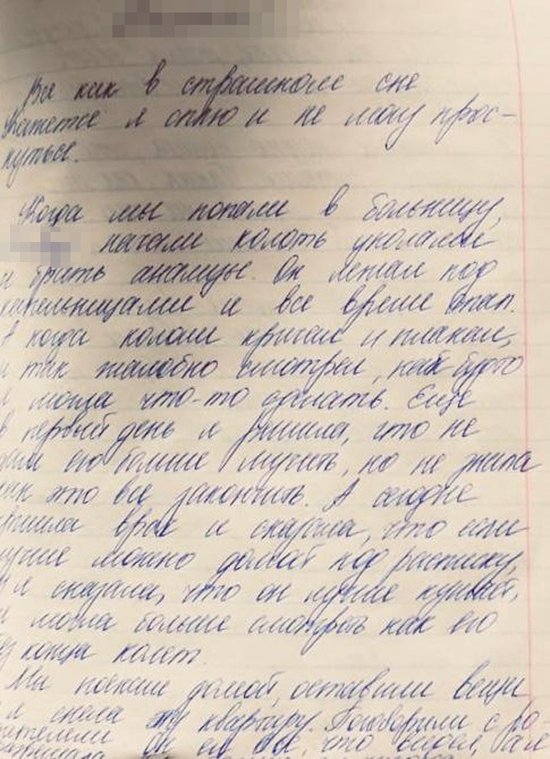 Все как в страшном сне
кажется я сплю и не могу прос-
нуться.
Когда мы попали в больницу,
начали колоть уколами
и брать анализы. Он лежал под
капельницами и все время спал.
А когда кололи кричал и плакал,
и так жалобно смотрел, как будто
я могла что-то сделать. Еще
в первый день я решила, что не
дам его больше мучить, но не знала
как это все закончить. А сегодня
пришла врач и сказала, что если
лучше можно домой под расписку,
и я сказала, что он лучше кушает,
не могла больше смотреть как его
без конца колют.
Мы поехали домой, оставили вещи
и я сняла эту квартиру. Поговорили с ро
дителями Он ел все, что видел, а я